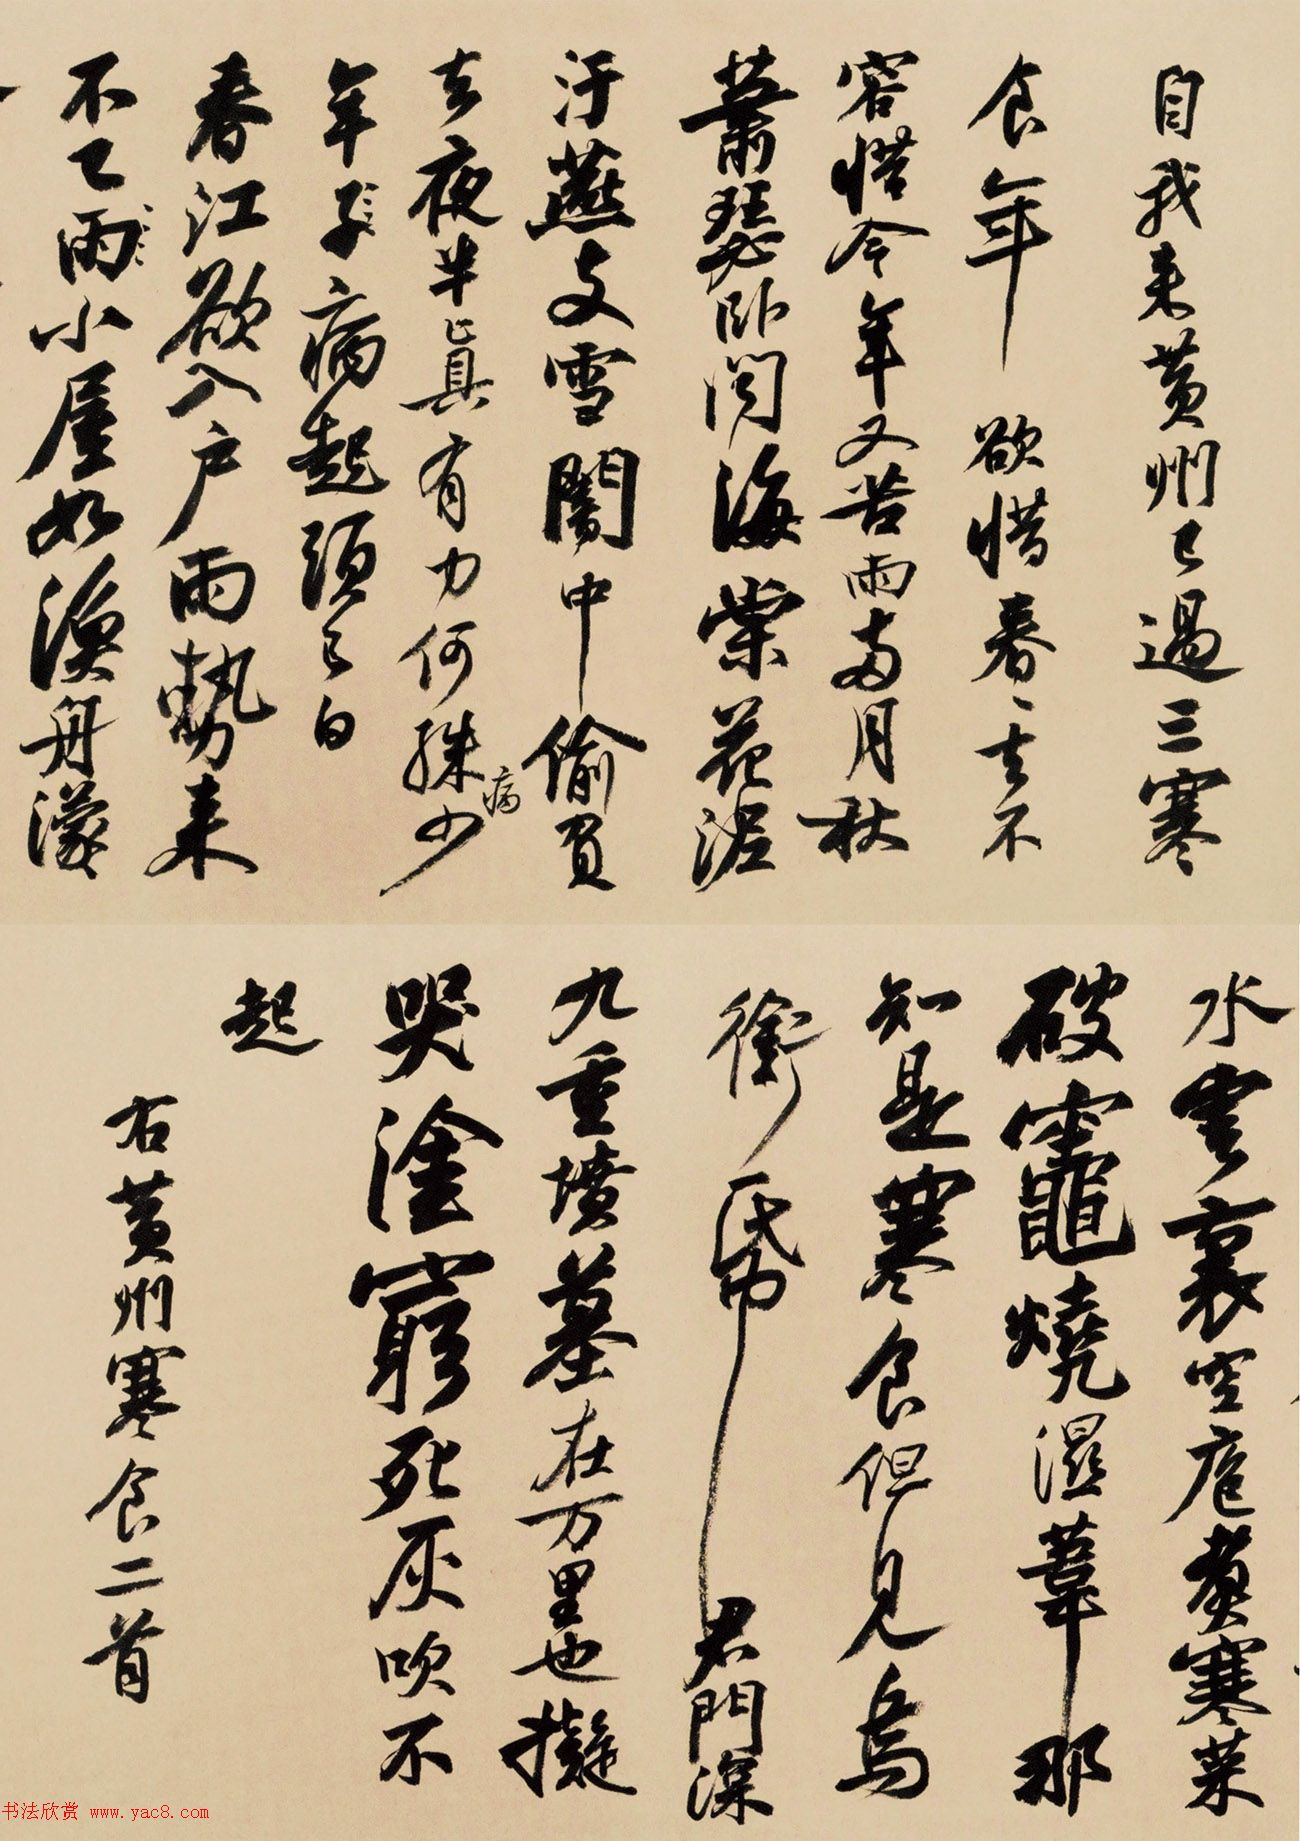 自我来黄州已過三寒
食年年欲惜春春去不
容惜今年又苦雨兩月秋
蕭瑟卧聞海棠花泥
汙燕支雪闇中偷負
去夜半真有力何殊少
病
年子病起頭已白
春江欲入户雨勢来
不已雨小屋如漁舟濛
水雲裏空庖煮寒菜
破竈燒濕葦那
知是寒食但見烏
銜帋君門深
九重墳墓在万里也擬
哭塗窮死灰吹不
起
右黄州寒食二首
书法欣赏 www.yac8.com